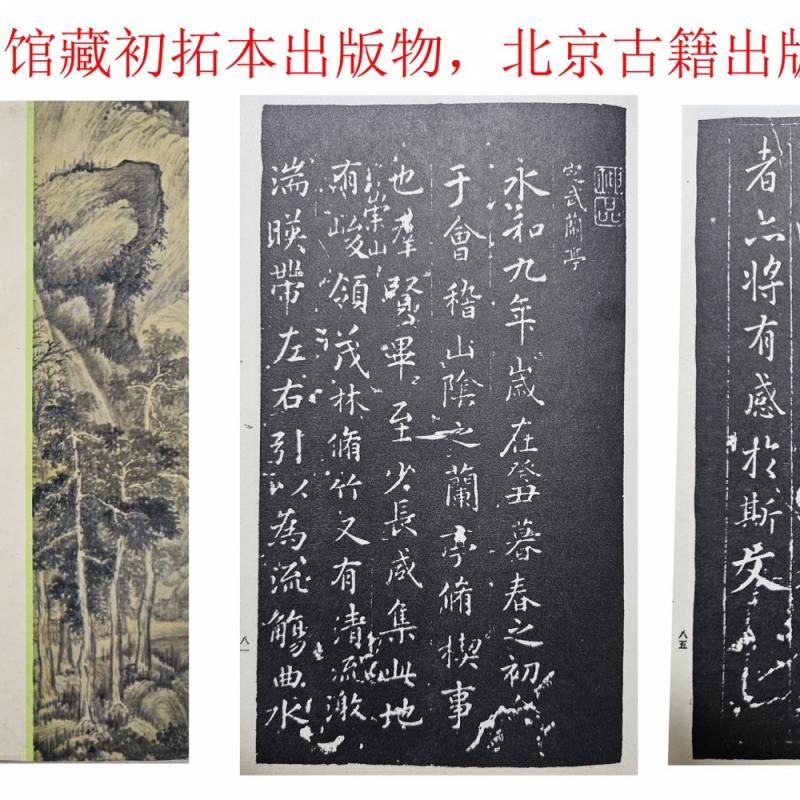 馆藏初拓本出版物，北京古籍出版
神品
定武蘭亭
永和九年歲在癸丑暮春之初
于會稽山陰之蘭亭脩禊事
也羣賢畢至少長咸集此地
有崇山峻領茂林脩竹又有清流激
湍暎帶左右引以為流觴曲水
八一
者亦將有感於斯文
八五